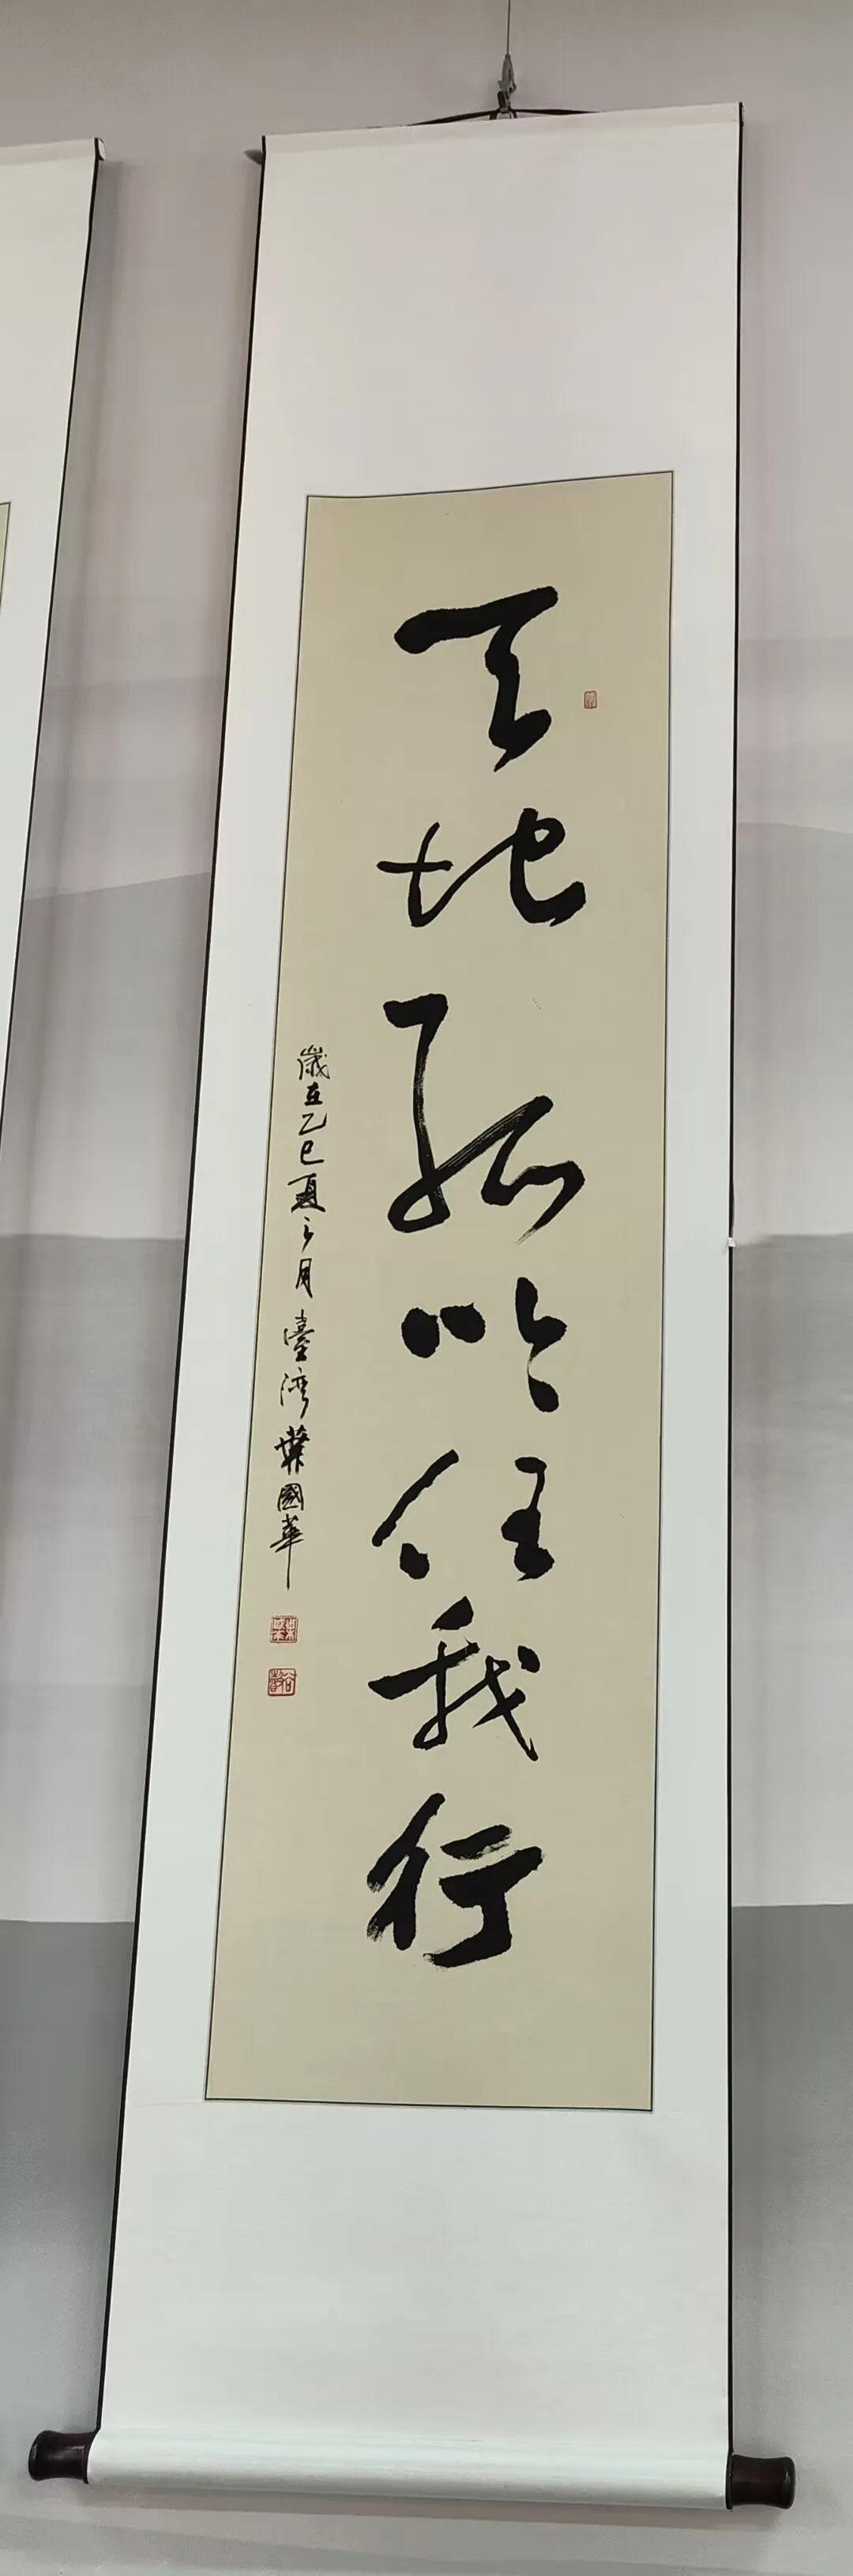 天地孤吟任我行
歲在乙巳夏之月臺灣葉國華